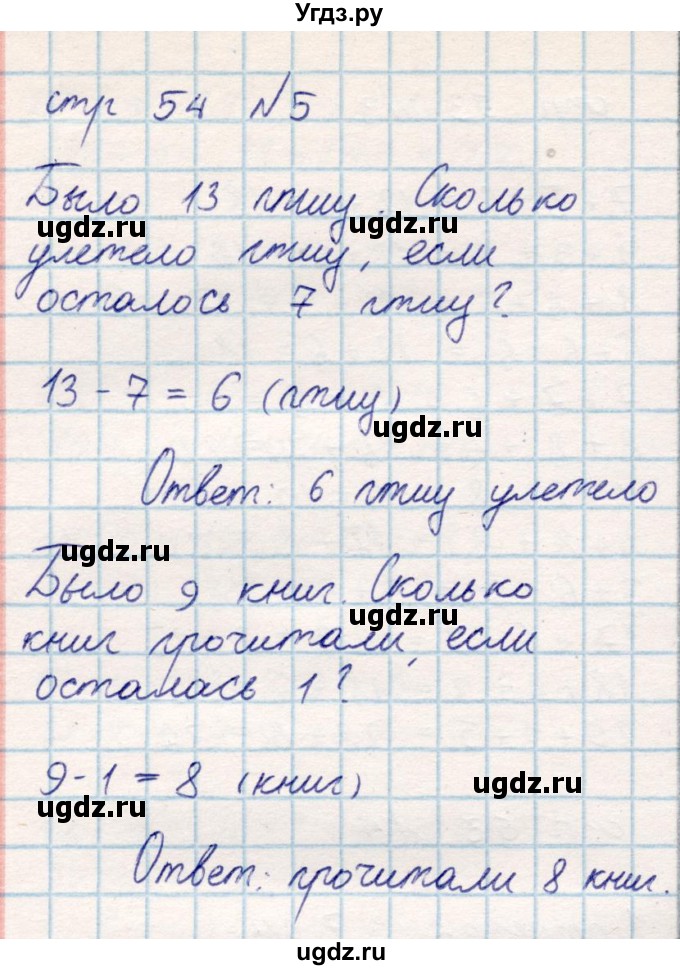 Угдз.ру
стр 54 №5
Было 13 птиц. Сколько
ugdz.ru
ugdz.ru
улетело птиц, если
осталось 7 птиц?
13 - 7 = 6 (птиц)
ugdz.ru
Ответ: 6 птиц улетело
ugdz.ru
Было 9 книг. Сколько
ugdz.ru
книг прочитали, если
осталась 1?
9 - 1 = 8 (книг)
ugdz.ru
ugdz.ru
Ответ: прочитали 8 книг.
ugdz.ru